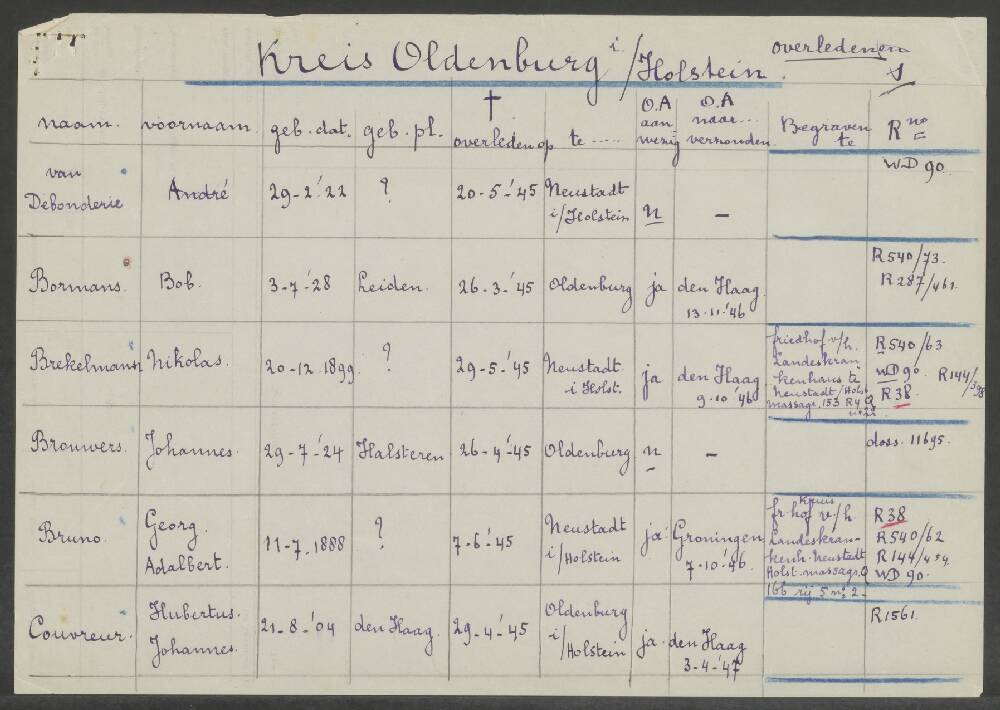 Kreis Oldenburg i/Holstein.
overledenen
1
naam. voornaam. geb. dat. geb. pl. † overleden op te ..... O.A aan wezig O.A naar... verzonden. Begraven te R no =
van Debonderie André 29-2-'22 ? 20-5-'45 Neustadt i/Holstein n - WD 90.
Bormans. Bob. 3-7-'28 Leiden. 26-3-'45 Oldenburg ja den Haag. 13-11-'46 R540/73. R287/461.
Brekelmans Nikolas. 20-12-1899. ? 29-5-'45 Neustadt i Holst. ja den Haag 9-10-'46 friedhof v/h. Landeskran kenhaus te Neustadt/Holst massagr. 153 R4 Q no 22 R540/63 WD 90. R144/398 R38.
Brouwers. Johannes. 29-7-'24 Halsteren 26-4-'45 Oldenburg n - doss. 11695.
Bruno. Georg. Adalbert. 11-7-1888 ? 7-6-'45 Neustadt i/Holstein ja Groningen 7-10-'46. fr. hof v/h. Landeskran- kenh. Neustadt Holst. massagr. Q 166 rij 5 no 2- R38 R540/62 R144/454. WD 90.
Couvreur. Hubertus. Johannes. 21-8-'04 den Haag. 29-4-'45 Oldenburg i/Holstein ja. den Haag 3-4-'47 R1561.